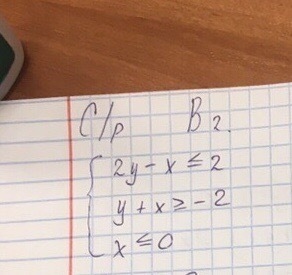 С/р В 2.
2y - x ≤ 2
y + x ≥ -2
x ≤ 0